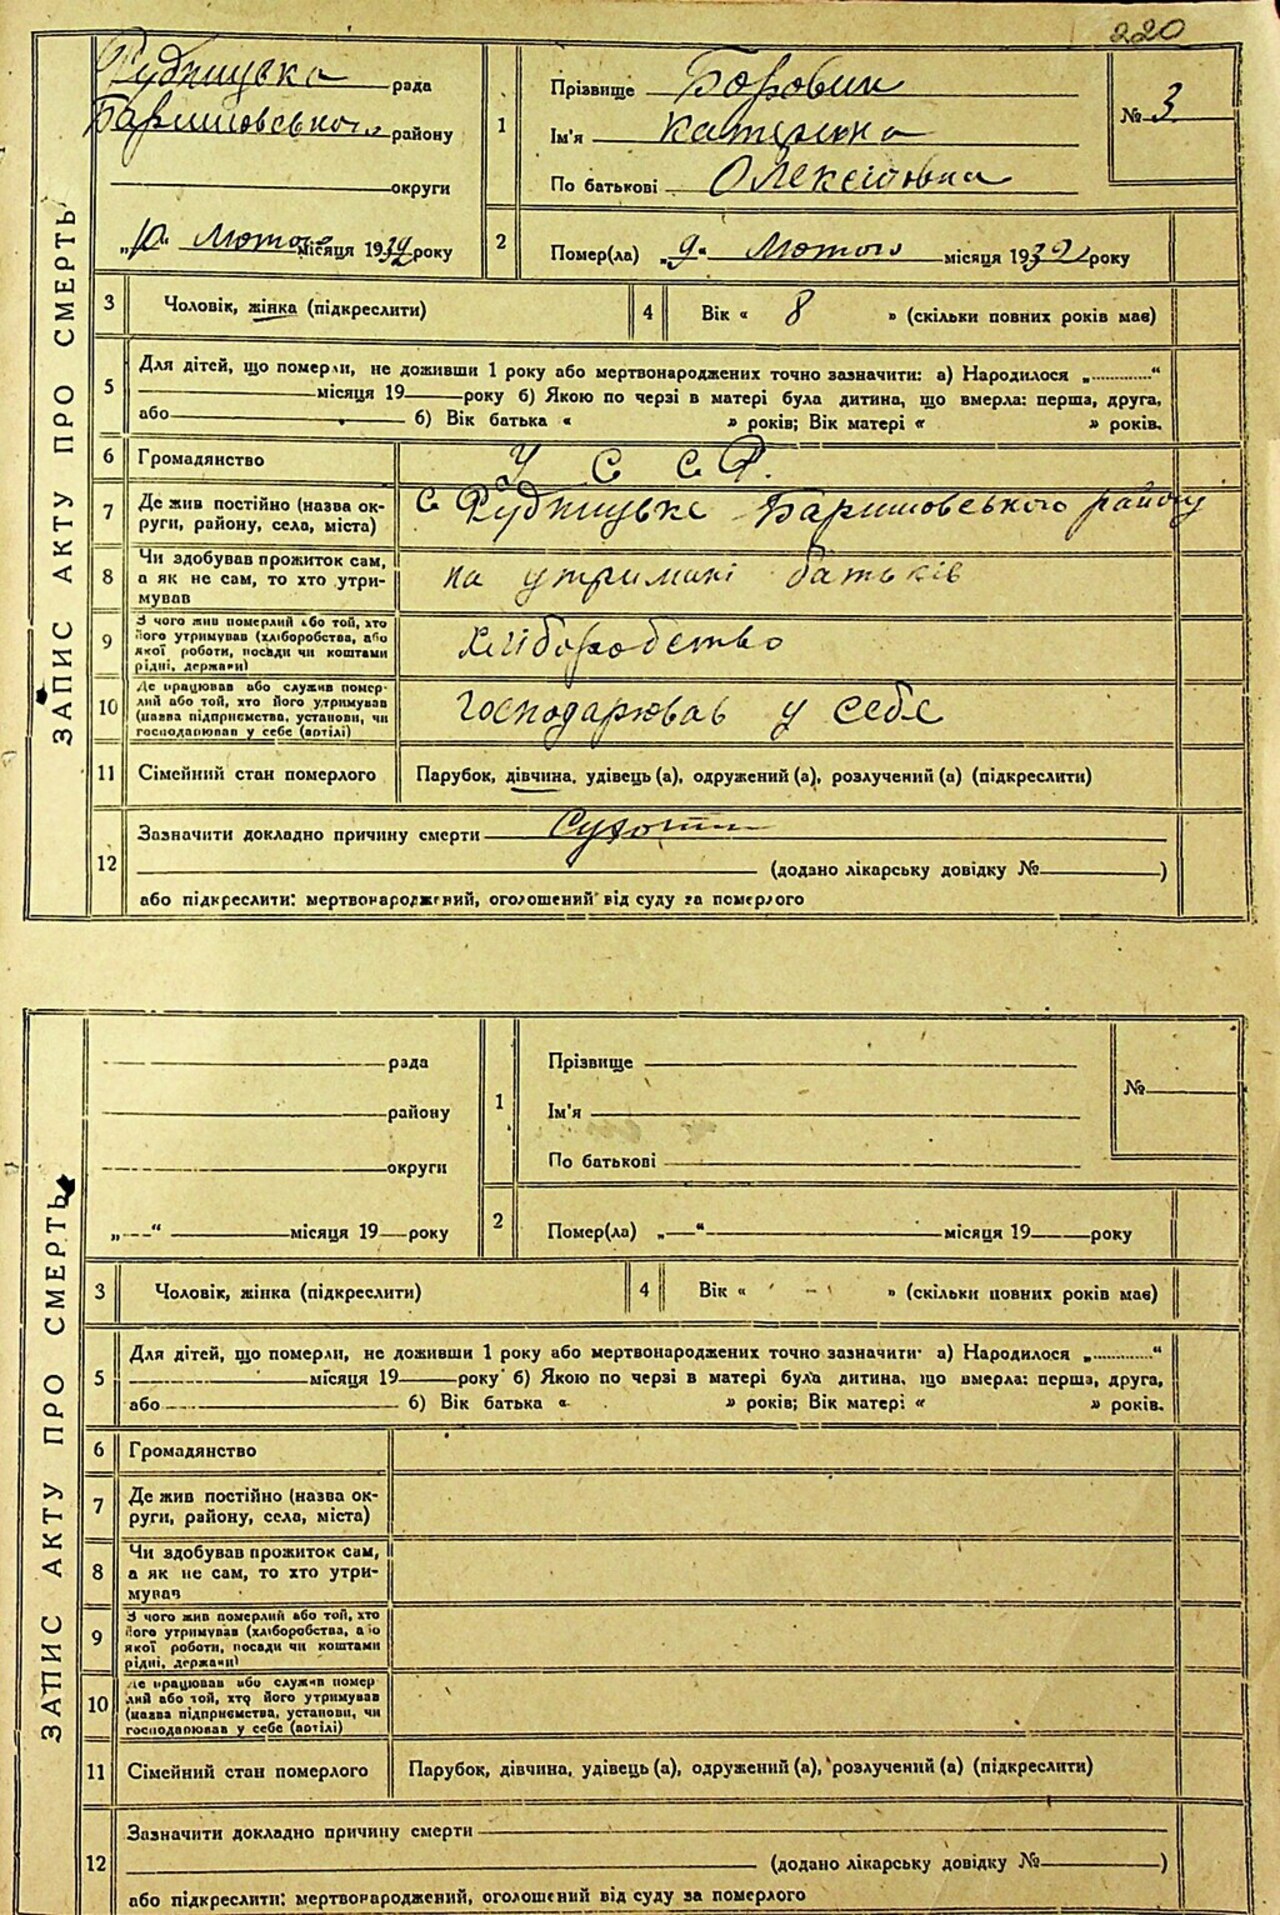 220
ЗАПИС АКТУ ПРО СМЕРТЬ
Рудницька рада
Баришовського району
округи
„10“ Лютого місяця 1932 року
1
Прізвище Боровик
Ім'я Катерина
По батькові Олексіївна
№ 3
2
Помер(ла) „9“ Лютого місяця 1932 року
3
Чоловік, жінка (підкреслити)
4
Вік « 8 » (скільки повних років має)
5
Для дітей, що померли, не доживши 1 року або мертвонароджених точно зазначити: а) Народилося „............“
місяця 19 року б) Якою по черзі в матері була дитина, що вмерла: перша, друга,
або б) Вік батька « » років; Вік матері « » років.
6
Громадянство
У С С Р.
7
Де жив постійно (назва ок-
руги, району, села, міста)
с Рудницьке Баришовського району
8
Чи здобував прожиток сам,
а як не сам, то хто утри-
мував
на утримані батьків
9
З чого жив померлий або той, хто
його утримував (хліборобства, або
якої роботи, посади чи коштами
рідні, держави)
хліборобство
10
Де працював або служив помер-
лий або той, хто його утримував
(назва підприємства, установи, чи
господарював у себе (артілі)
господарював у себе
11
Сімейний стан померлого
Парубок, дівчина, удівець (а), одружений (а), розлучений (а) (підкреслити)
12
Зазначити докладно причину смерти Сухоти
(додано лікарську довідку № )
або підкреслити: мертвонароджений, оголошений від суду за померлого
ЗАПИС АКТУ ПРО СМЕРТЬ
рада
району
округи
„ “ місяця 19 року
1
Прізвище
Ім'я
По батькові
№
2
Помер(ла) „ “ місяця 19 року
3
Чоловік, жінка (підкреслити)
4
Вік « » (скільки повних років має)
5
Для дітей, що померли, не доживши 1 року або мертвонароджених точно зазначити: а) Народилося „............“
місяця 19 року б) Якою по черзі в матері була дитина, що вмерла: перша, друга,
або б) Вік батька « » років; Вік матері « » років.
6
Громадянство
7
Де жив постійно (назва ок-
руги, району, села, міста)
8
Чи здобував прожиток сам,
а як не сам, то хто утри-
мував
9
З чого жив померлий або той, хто
його утримував (хліборобства, або
якої роботи, посади чи коштами
рідні, держави)
10
Де працював або служив помер
лий або той, хто його утримував
(назва підприємства, установи, чи
господарював у себе (артілі)
11
Сімейний стан померлого
Парубок, дівчина, удівець (а), одружений (а), розлучений (а) (підкреслити)
12
Зазначити докладно причину смерти
(додано лікарську довідку № )
або підкреслити: мертвонароджений, оголошений від суду за померлого